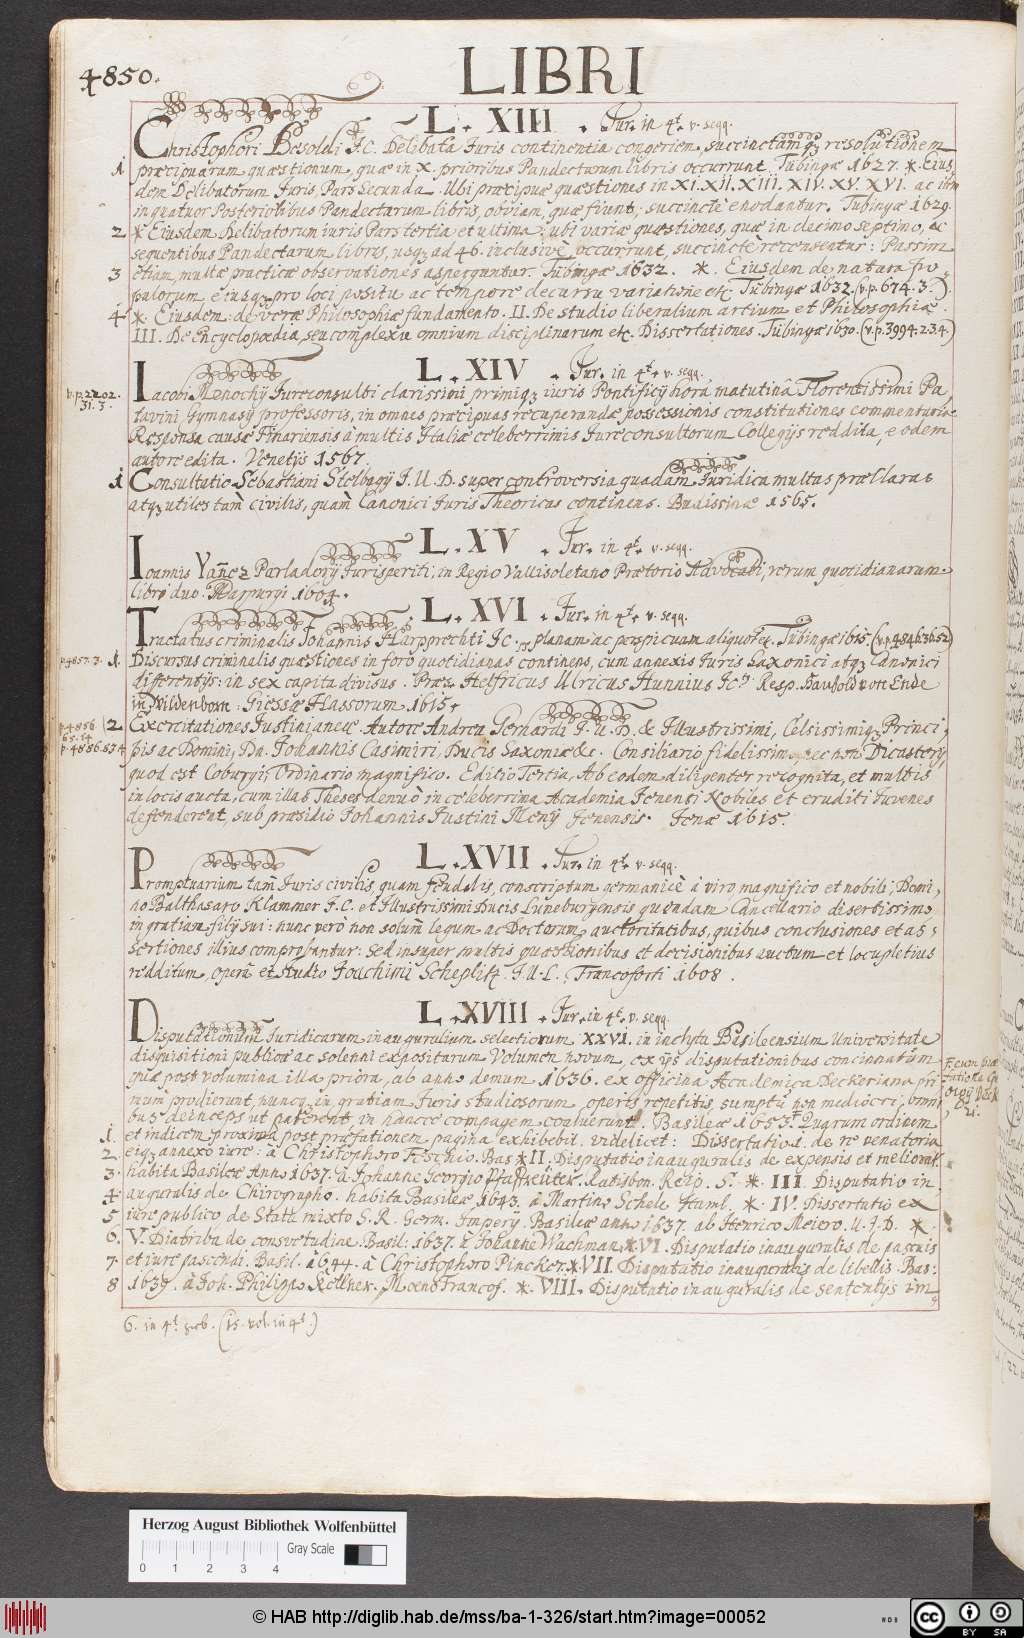 4850.
LIBRI
L. XIII. Jur. in 4t. v. segg.
Christophori Besoldi J.C. Delibata Juris continentia congeriem, succinctamq3 resolutionem
1 præcipuarum quæstionum, quæ in X. prioribus Pandectarum libris occurrunt. Tubingæ 1627. * Eius,
dem Delibatorum Juris Pars Secunda. Ubi præcipuæ quæstiones in XI. XII. XIII. XIV. XV. XVI. ac
in quatuor Posterioribus Pandectarum libris, obviam, quæ fiunt, succinctè enodantur. Tubingæ 1629.
2 * Eiusdem Delibatorum iuris Pars tertia et ultima; ubi variæ quæstiones, quæ in decimo septimo, ac
sequentibus Pandectarum libris, usq3 ad 46. inclusivè occurrunt, succinctè recenseatur: Passim
3 etiam, multæ practicæ observationes asperguntur. Tubingæ 1632. *. Eiusdem de natura po,
pulorum, eiusq3 pro loci positu ac tempore decursu variatione etc. Tubingæ 1632. (v.p. 674. 3.)
4 *. Eiusdem: de veræ Philosophiæ fundamento. II. De studio liberalium artium et Philosophiæ.
III. De Encyclopædia, seu complexu omnium disciplinarum etc. Dissertationes. Tubingæ 1630. (v.p. 3994. 2.3.4.)
L. XIV. Jur. in 4t. v. segg.
v.p. 2202.
31. 3.
Iacobi Menochij Jureconsulti clarissimi primiq3 iuris Pontificij horâ matutinâ Florentissimi Pa,
tavini Gymnasij professoris, in omnes præcipuas recuperandæ possessionis constitutiones commentaria.
Responsa causæ Finariensis à multis Italiæ celeberrimis Jureconsultorum Collegijs reddita, eodem
autore edita. Venetijs 1567.
1 Consultatio Sebastiani Stelbagij J. U. D. super controversia quadam Juridica multas præclaras
atq3 utiles tam civilis, quàm Canonici Juris Theoricas continens. Budissinæ 1565.
L. XV. Jur. in 4t. v. segg.
Ioannis Yañez Parladorij Jurisperiti, in Regio Vallisoletano Prætorio Advocati, rerum quotidianarum
libri duo. Marpurgi 1604.
L. XVI. Jur. in 4t. v. segg.
Tractatus criminalis Johannis Harpprechti JC. planam ac perspicuam Tubingæ 1615.
p. 4857. 3. 1. Discursus criminalis quæstiones in foro quotidianas continens, cum annexis Juris Saxonici atq3 Canonici
differentijs: in sex capita divisus. Præs. Helfricus Ulricus Hunnius JC9. Resp. Haubold von Ende
in Wildenborn. Giessæ Hassorum 1615.
2 Exercitationes Justinianeæ Autore Andrea Gerhardi J. U. D. & Illustrissimi, Celsissimiq3 Princi,
pis ac Domini, Dn. Johannis Casimiri, Ducis Saxoniæ &c. Consiliario fidelissimo, nec non Dicasterij,
quod est Coburgi, Ordinario magnifico. Editio Tertia, Ab eodem diligenter recognita, et multis
in locis aucta, cum illas Theses denuò in celeberrima Academia Jenensi Nobiles et eruditi Juvenes
defenderent, sub præsidio Johannis Justini Jenensis. Jenæ 1615.
L. XVII. Jur. in 4t. v. segg.
Promptuarium tam Juris civilis, quam feudalis, conscriptum germanicè à viro magnifico et nobili, Domi,
no Balthasaro Klammer J.C. et Illustrissimi Ducis Luneburgensis quondam Cancellario disertissimo,
in gratiam filij sui: nunc verò non solum legum ac Doctorum auctoritatibus, quibus conclusiones et as,
sertiones illius comprobantur: sed insuper multis quæstionibus et decisionibus auctum et locupletius
redditum, operâ et studio Joachimi Scheplitz. J.U.L. Francoforti 1608.
L. XVIII. Jur. in 4t. v. segg.
Disputationum Juridicarum inauguralium selectiorum XXVI. in inclyta Basileensium Universitate
disquisitioni publicæ ac solenni expositarum Volumen novum, ex ijs disputationibus concinnatum
quæ post volumina illa priora, ab anno demum 1636. ex officina Academica Deckeriana pri
mum prodierunt, nuncq3 in gratiam Juris studiosorum, operis repetitis, sumptu non mediocri, omni
bus deinceps ut paterent, in hancce compagem coaluerunt. Basileæ 1653. Quarum ordinem
1. et indicem proxima post præfationem pagina exhibebit. videlicet: Dissertatio 1. de re venatoria
2. eiq3 annexo iure: à Christophoro Feschio. Bas * II. Disputatio inauguralis de expensis et meliorat.
3. habita Basileæ Ann. 1637. à Johanne Georgio Pfaffreüter. Ratisbon. Reip. S. *. III. Disputatio in
4. auguralis de Chirographo. habita Basileæ 1643. à Martino Schele Haml. *. IV. Dissertatio ex
5 iure publico de Statu mixto S. R. Germ. Imperij. Basileæ ann. 1637. ab Henrico Meiero. U. J. D. *.
6. V. Diatriba de consvetudine: Basil: 1637. à Johanne Wachman. * VI. Disputatio inauguralis de pascuis
7. et iure pascendi. Basil. 1644. à Christophoro Pincker. * VII. Disputatio inauguralis de libellis. Bas:
8 1639. à Joh. Philippo Kellner. Moeno Francof. *. VIII. Disputatio inauguralis de sententijs im
6. in 4t. (15. vol. in 4t.)
Herzog August Bibliothek Wolfenbüttel
Gray Scale
0 1 2 3 4
© HAB http://diglib.hab.de/mss/ba-1-326/start.htm?image=00052
WDB
cc BY SA